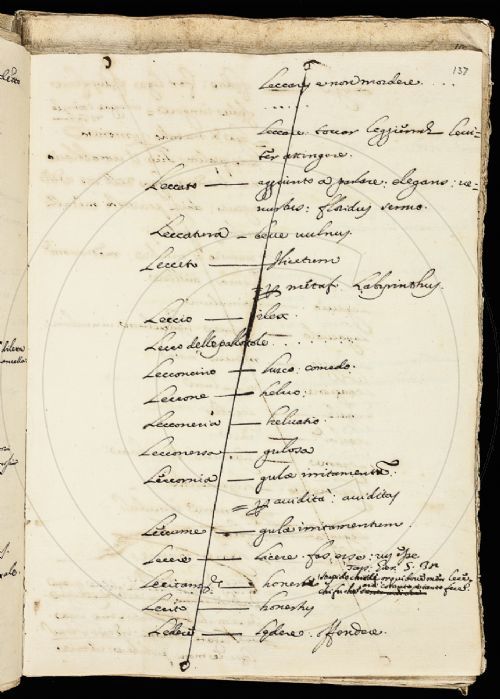 137
Leccare, e non mordere . . . .
. . . . .
Leccare toccar leggierm.te levi-
ter attingere.
Leccato — aggiunto a parlare: elegans: ve-
nustus: floridus sermo.
Leccatura — leve vulnus.
Lecceto — ilicetum
= p metaf. Labyrinthus.
Leccio — ilex
Lecco delle pallottole . . . .
Lecconcino — lurco: comedo.
Leccone — heluo.
Lecconeria — heluatio.
Lecconessa — gulosa
Leccornia — gulæ irritamentũ
= p avidità: aviditas
Lecume — gulæ irritamentum.
Lecere — licere. fas esse: ius
Lecitam.te — honeste
Lecito — honestus
Ledere — lædere. offendere.